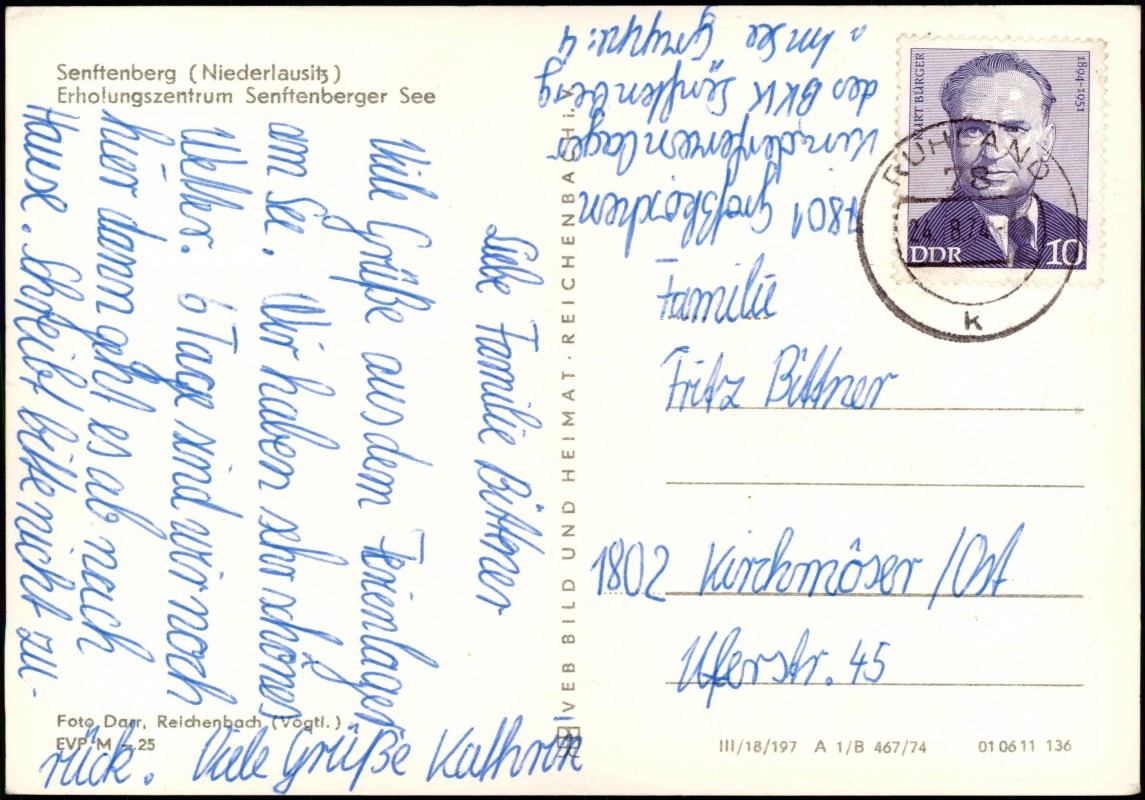 Senftenberg (Niederlausitz)
Erholungszentrum Senftenberger See
Liebe Familie Bittner
Viele Grüße aus dem Ferienlager
am See. Wir haben sehr schönes
Wetter. 6 Tage sind wir noch
hier dann geht es ab nach
Hause. Schreibt bitte nicht zu-
rück. Viele Grüße Kathrin
Foto Darr, Reichenbach (Vogtl.)
EVP M -.25
VEB BILD UND HEIMAT · REICHENBACH i. V.
7801 Großkoschen
Kinderferienlager
des BKK Senftenberg
Gruppe: 4
KURT BÜRGER
1894-1951
DDR 10
RUHLAND
78
24. 8.74-
k
Familie
Fritz Bittner
1802 Kirchmöser/Ost
Uferstr. 45
III/18/197 A 1/B 467/74 01 06 11 136